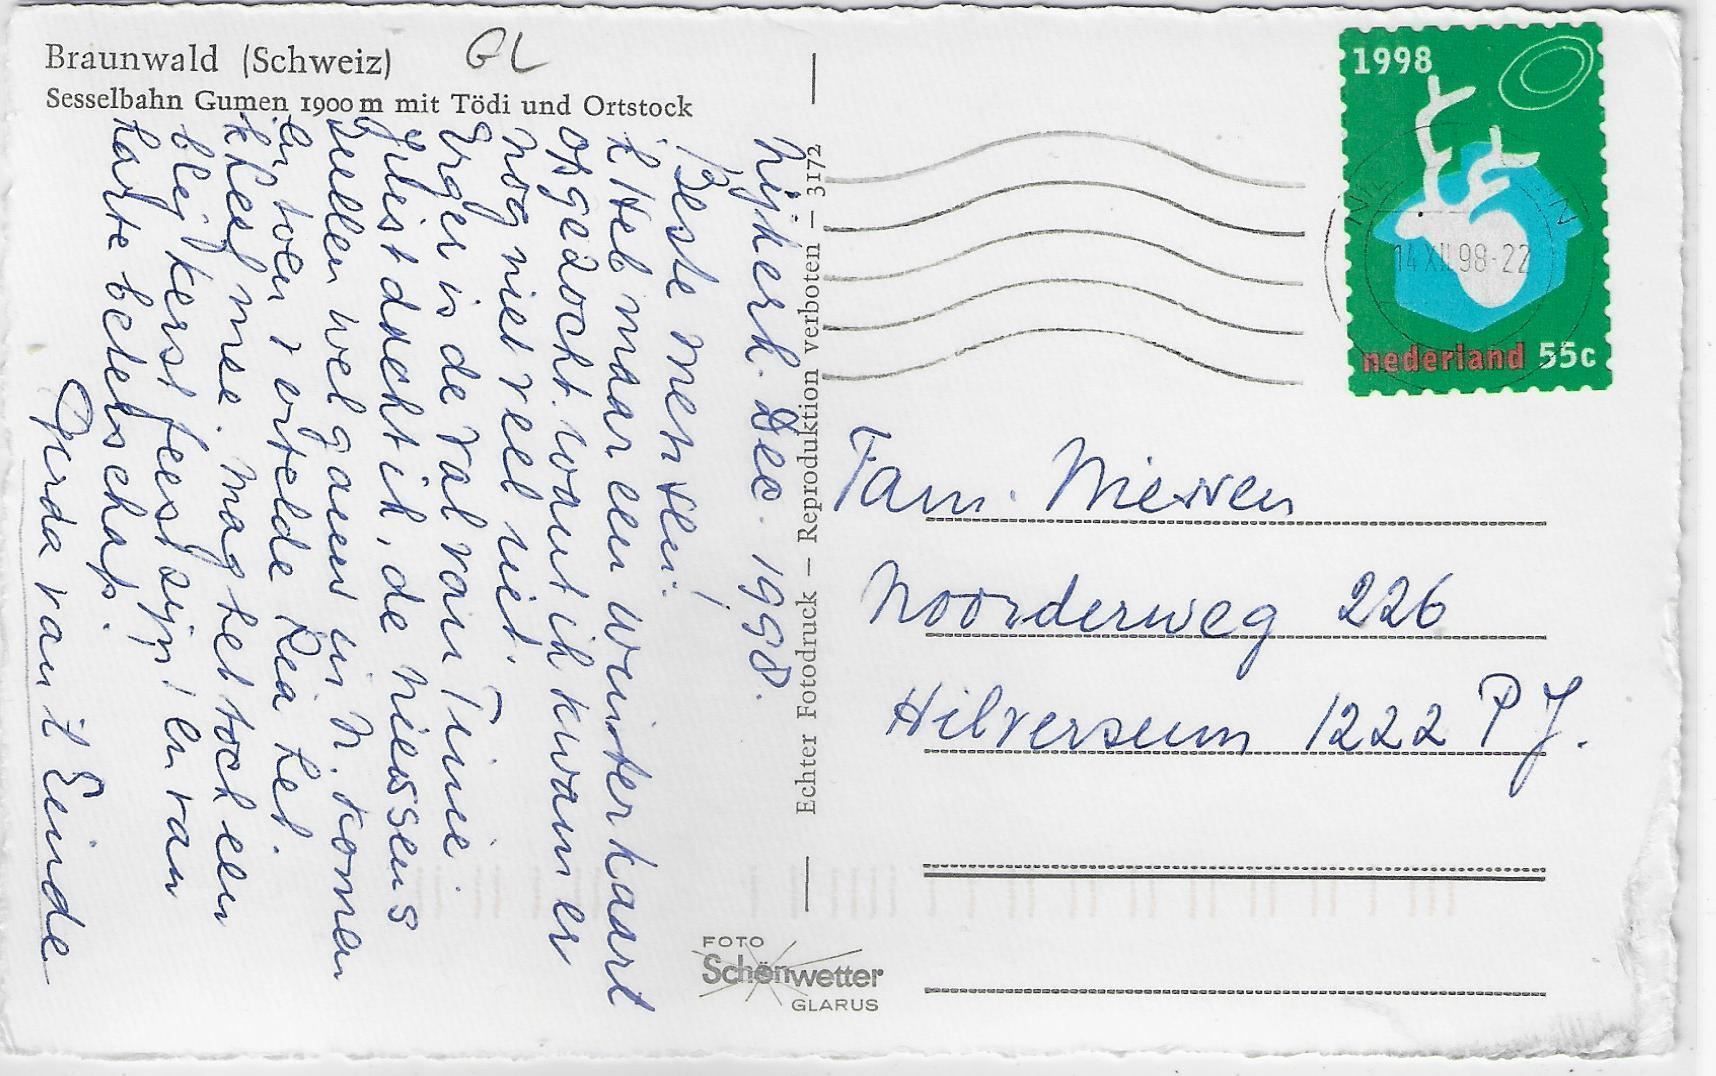 Braunwald (Schweiz)
GL
Sesselbahn Gumen 1900 m mit Tödi und Ortstock
Nijkerk. Dec. 1998.
Beste mensen!
k Heb maar een winterkaart
opgezocht want ik kwam er
nog niet veel uit.
Erger is de val van Tinie.
Juist dacht ik, de Niessens
zullen wel gauw in N. komen
en toen vertelde Ria het.
k Leef mee. Mag het toch een
blij kerstfeest zijn! En van
harte beterschap.
Gerda van 't Einde
Echter Fotodruck – Reproduktion verboten – 3172
FOTO
Schönwetter
GLARUS
1998
14 XII.98-22
nederland 55c
Fam. Niessen
Noorderweg 226
Hilversum 1222 PJ.